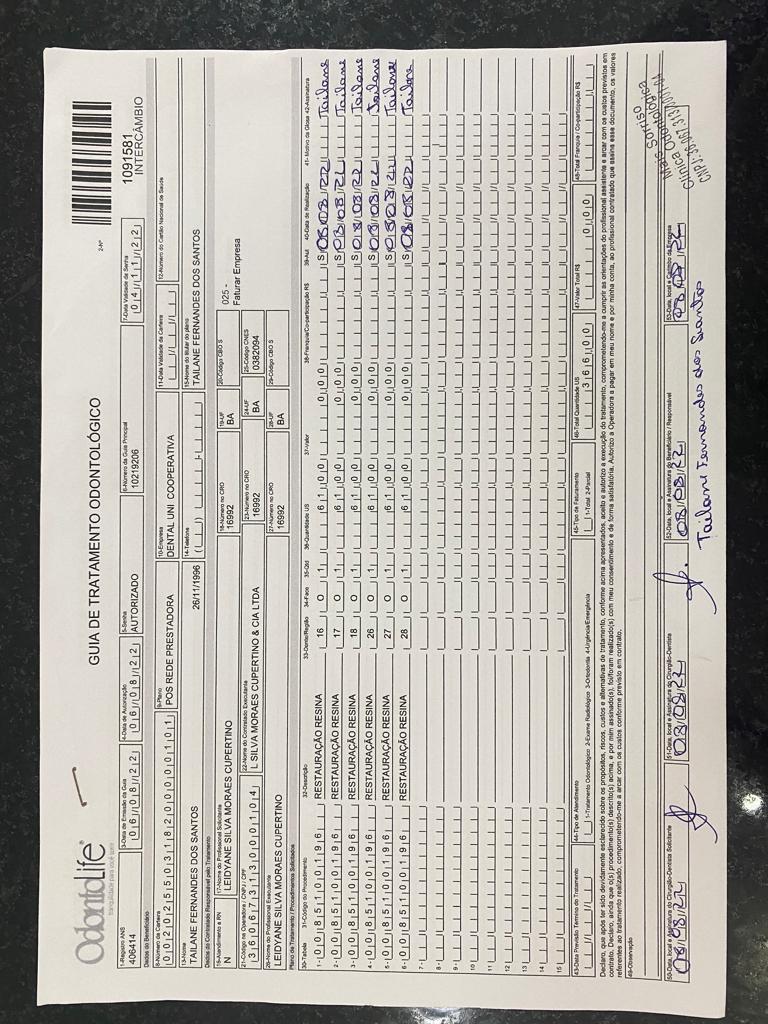 OdontoLife
GUIA DE TRATAMENTO ODONTOLÓGICO
2-Nº
1091581
INTERCÂMBIO
1-Registro ANS
406414
3-Data de Emissão da Guia
06/08/22
4-Data de Autorização
06/08/22
5-Senha
AUTORIZADO
6-Número da Guia Principal
10219206
7-Data Validade da Senha
04/11/22
Dados do Beneficiário
8-Número da Carteira
00202550318200000101
9-Plano
POS REDE PRESTADORA
10-Empresa
DENTAL UNI COOPERATIVA
11-Data Validade da Carteira
12-Número do Cartão Nacional de Saúde
13-Nome
TAILANE FERNANDES DOS SANTOS
26/11/1996
14-Telefone
15-Nome do titular do plano
TAILANE FERNANDES DOS SANTOS
Dados do Contratado Responsável pelo Tratamento
16-Atendimento a RN
N
17-Nome do Profissional Solicitante
LEIDYANE SILVA MORAES CUPERTINO
18-Número no CRO
16992
19-UF
BA
20-Código CBO S
025 -
Faturar Empresa
21-Código na Operadora / CNPJ / CPF
36067313000104
22-Nome do Contratado Executante
L SILVA MORAES CUPERTINO & CIA LTDA
23-Número no CRO
16992
24-UF
BA
25-Código CNES
0382094
26-Nome do Profissional Executante
LEIDYANE SILVA MORAES CUPERTINO
27-Número no CRO
16992
28-UF
BA
29-Código CBO S
Plano de Tratamento / Procedimentos Solicitados
30-Tabela 31-Código do Procedimento 32-Descrição 33-Dente/Região 34-Face 35-Qtd 36-Quantidade US 37-Valor 38-Franquia/Co-participação R$ 39-Aut 40-Data de Realização 41- Motivo da Glosa 42-Assinatura
1- 00 85100196 RESTAURAÇÃO RESINA 16 O 1 61,00 0,00 S 08/08/22 Tailane
2- 00 85100196 RESTAURAÇÃO RESINA 17 O 1 61,00 0,00 S 08/08/22 Tailane
3- 00 85100196 RESTAURAÇÃO RESINA 18 O 1 61,00 0,00 S 08/08/22 Tailane
4- 00 85100196 RESTAURAÇÃO RESINA 26 O 1 61,00 0,00 S 08/08/22 Tailane
5- 00 85100196 RESTAURAÇÃO RESINA 27 O 1 61,00 0,00 S 08/08/22 Tailane
6- 00 85100196 RESTAURAÇÃO RESINA 28 O 1 61,00 0,00 S 08/08/22 Tailane
7-
8-
9-
10
11
12
13
14
15
43-Data Previsão Término do Tratamento
44-Tipo de Atendimento
1-Tratamento Odontológico 2-Exame Radiológico 3-Ortodontia 4-Urgência/Emergência
45-Tipo de Faturamento
1-Total 2-Parcial
46-Total Quantidade US
366,00
47-Valor Total R$
0,00
48-Total Franquia / Co-participação R$
Declaro, que após ter sido devidamente esclarecido sobre os propósitos, riscos, custos e alternativas de tratamento, conforme acima apresentados, aceito e autorizo a execução do tratamento, comprometendo-me a cumprir as orientações do profissional assistente e arcar com os custos previstos em
contrato. Declaro, ainda que o(s) procedimento(s) descrito(s) acima, e por mim assinado(s), foi/foram realizado(s) com meu consentimento e de forma satisfatória. Autorizo a Operadora a pagar em meu nome e por minha conta, ao profissional contratado que assina esse documento, os valores
referentes ao tratamento realizado, comprometendo-me a arcar com os custos conforme previsto em contrato.
49-Observação
50-Data, local e Assinatura do Cirurgião-Dentista Solicitante
08/08/22
51-Data, local e Assinatura do Cirurgião-Dentista
08/08/22
52-Data, local e Assinatura do Beneficiário / Responsável
08/08/22
Tailane Fernandes dos Santos
53-Data, local e Carimbo da Empresa
08/08/22
Sorriso
Mais Odontológica
Clínica Odontológica